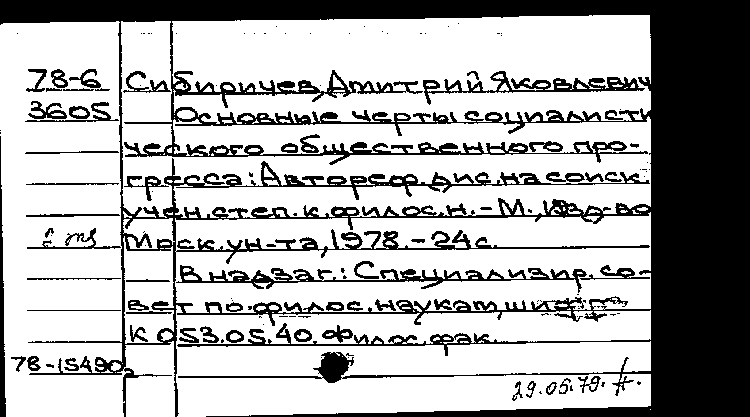 78-6 Сибиричев, Дмитрий Яковлевич
3605 Основные черты социалисти
ческого общественного про-
гресса: Автореф. дис. на соиск.
учен. степ. к. филос. н. - М., Изд-во
Моск. ун-та, 1978. - 24 с.
В надзаг.: Специализир. со-
вет по филос. наукам, шифр
К 053.05.40. Филос. фак.
78-15490
29.05.79.